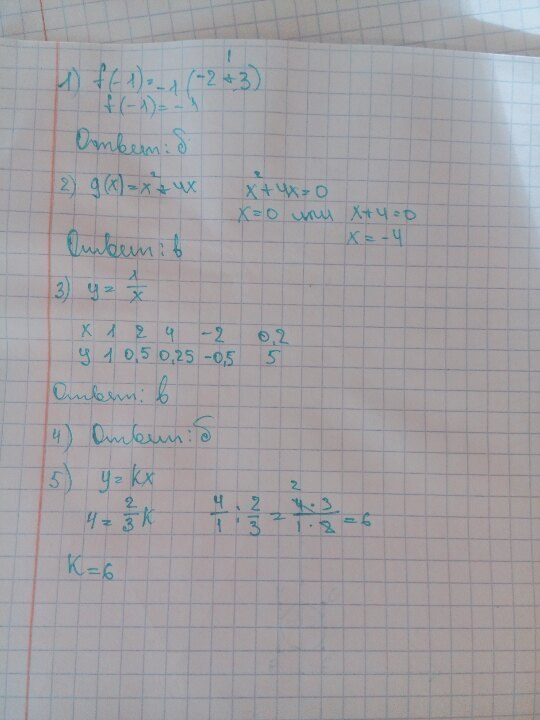 1) f(-1)=-1(-2+3)
1
f(-1)=-1
Ответ: б
2) g(x)=x²+4x x²+4x=0
x=0 или x+4=0
x=-4
Ответ: в
3) y=1/x
x 1 2 4 -2 0,2
y 1 0,5 0,25 -0,5 5
Ответ: в
4) Ответ: б
5) y=kx
4=2/3k 4/1:2/3=4·3/1·2=6
2
K=6